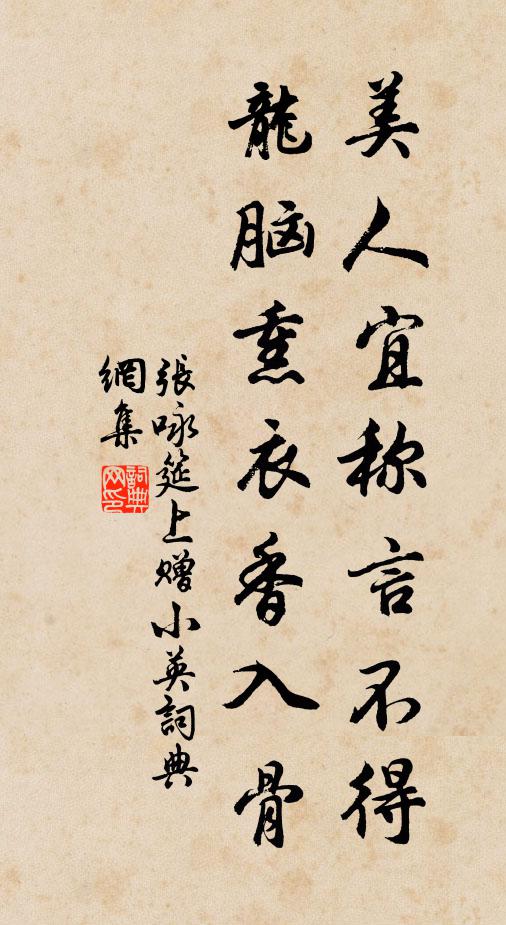 美人宜称言不得
龍脑熏衣香入骨
張咏筵上赠小英詞典
網集
詞典
网印